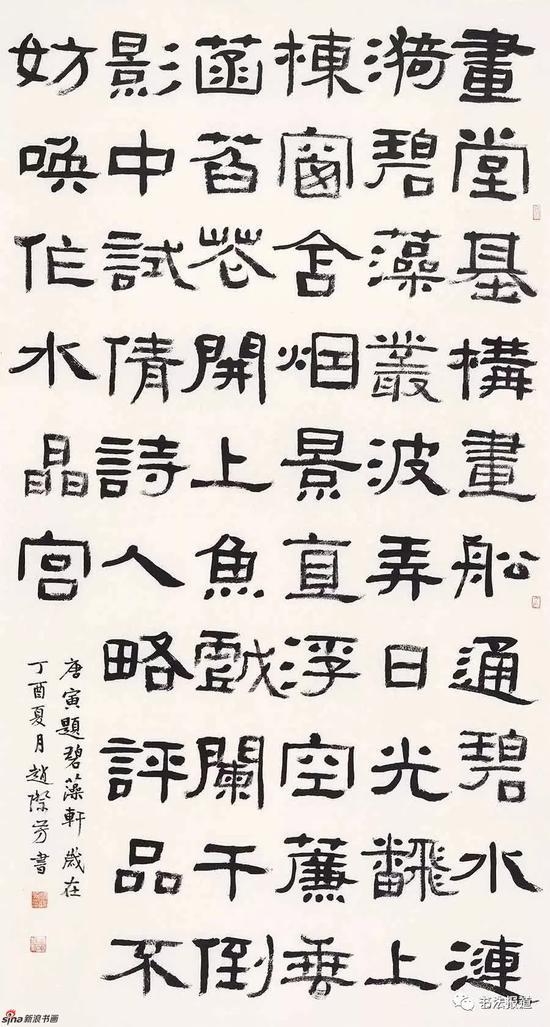 畫堂基構畫船通碧水漣
漪碧藻叢波弄日光飜上
棟窗含烟景直浮空簾垂
菡萏花開上魚戲闌干倒
影中試倩詩人略評品不
妨喚作水晶宮
唐寅題碧藻軒歲在
丁酉夏月趙際芳書
sina新浪书画
书法报道